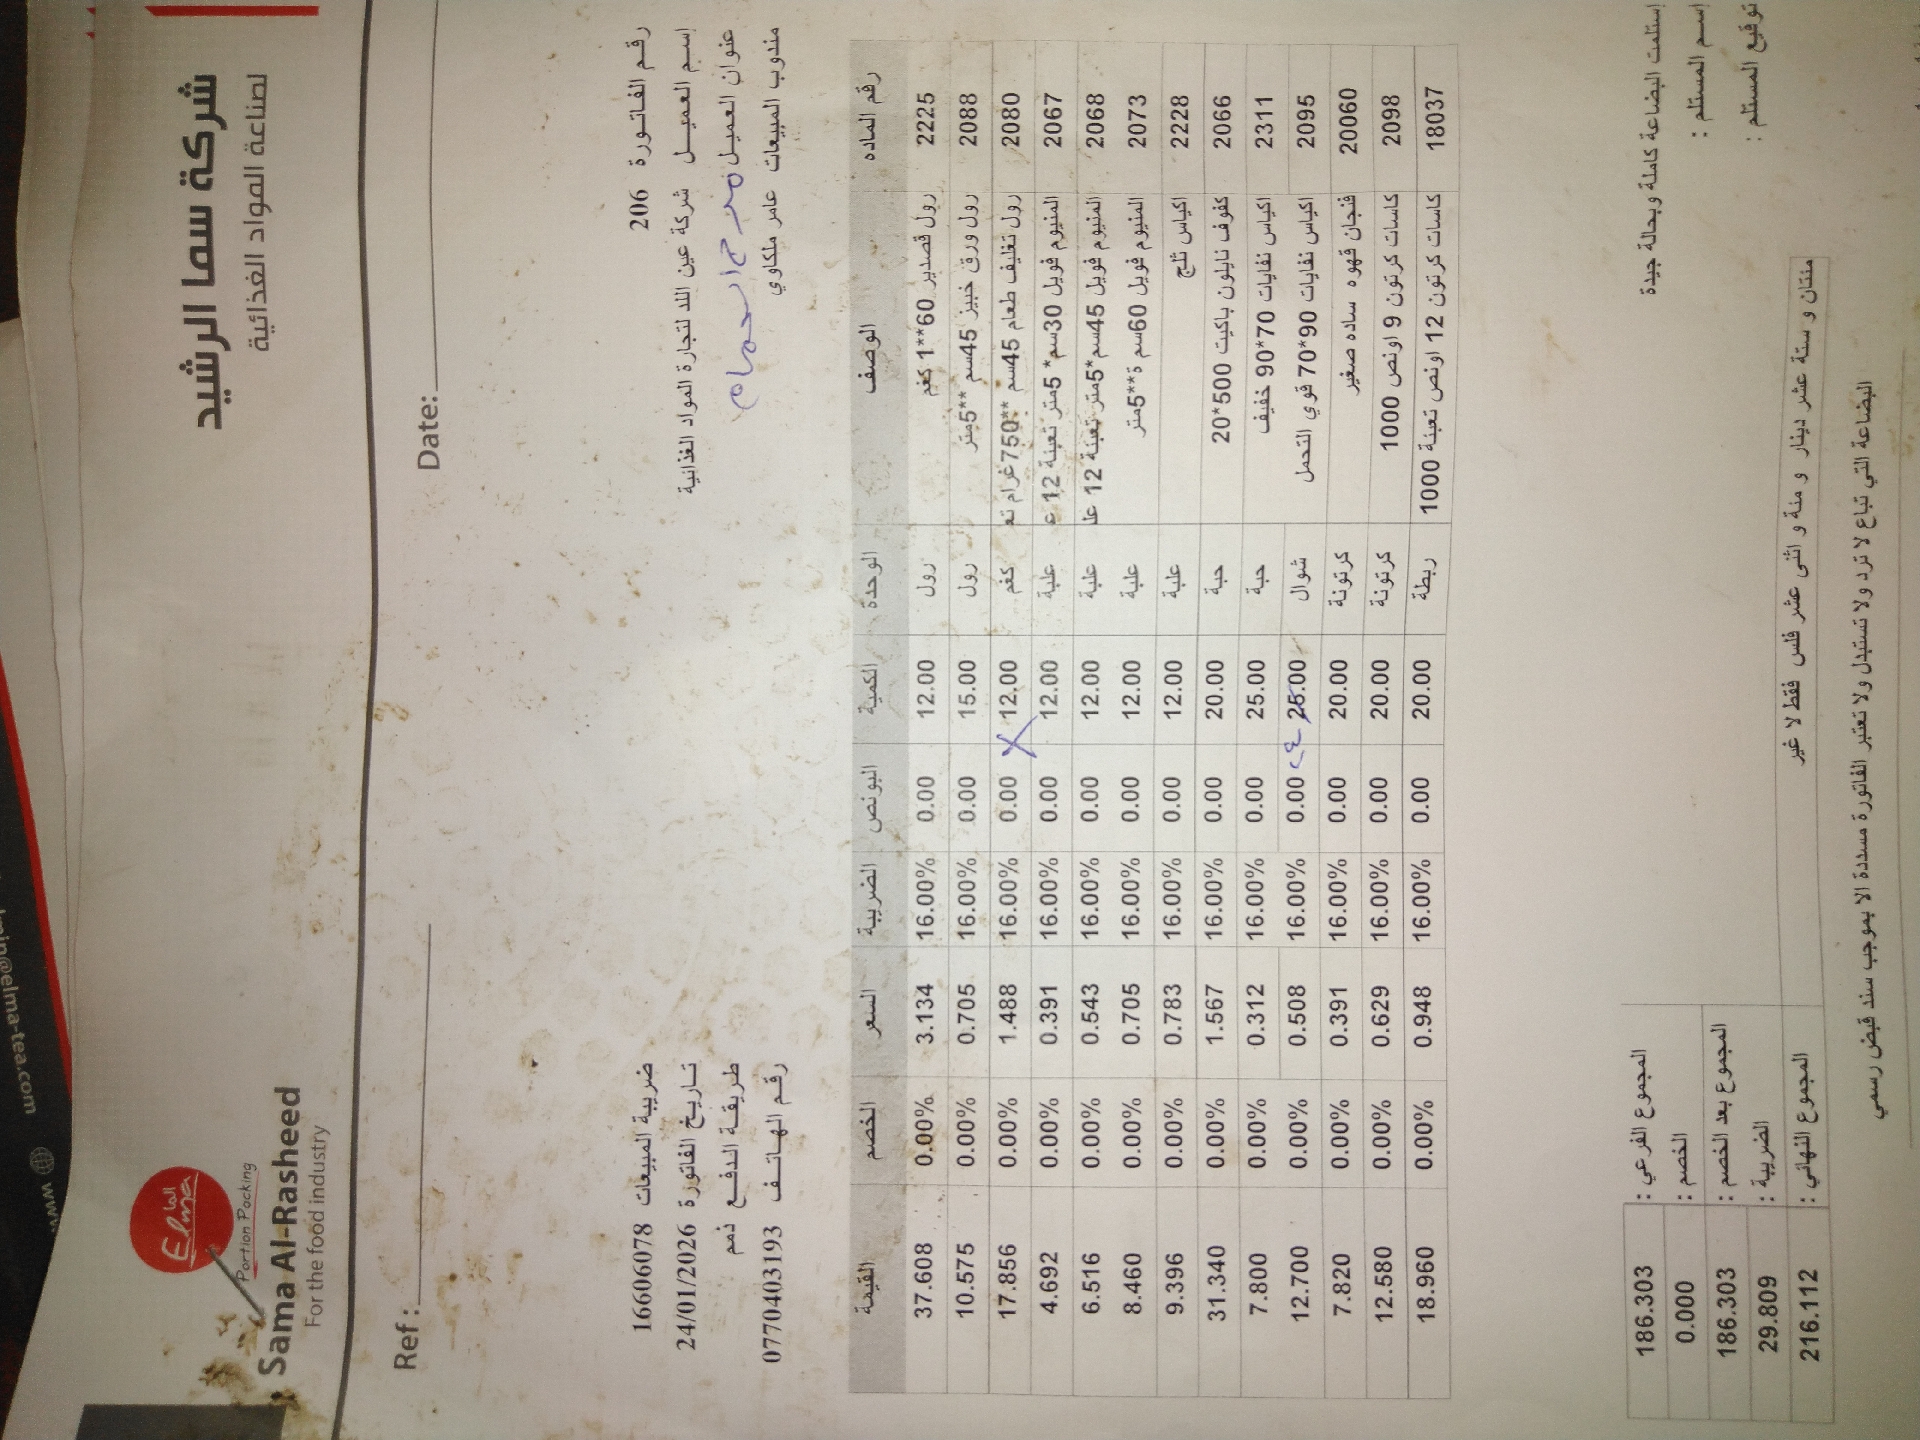 شركة سما الرشيد
لصناعة المواد الغذائية
Elma الما
Portion Packing
Sama Al-Rasheed
For the food industry
Ref :
Date:
رقم الفاتورة 206
ضريبة المبيعات 16606078
إسم العميل شركة عين اللد لتجارة المواد الغذائية
تاريخ الفاتورة 24/01/2026
عنوان العميل
طريقة الدفع ذمم
مندوب المبيعات عامر ملكاوي
رقم الهاتف 0770403193
رقم الماده الوصف الوحدة الكمية البونص الضريبة السعر الخصم القيمة
2225 رول قصدير 60**1 كغم رول 12.00 0.00 16.00% 3.134 0.00% 37.608
2088 رول ورق خبيز 45سم **5متر رول 15.00 0.00 16.00% 0.705 0.00% 10.575
2080 رول تغليف طعام 45سم **750غرام تع كغم 12.00 X 0.00 16.00% 1.488 0.00% 17.856
2067 المنيوم فويل 30سم* 5متر تعبئة 12 ع علبة 12.00 0.00 16.00% 0.391 0.00% 4.692
2068 المنيوم فويل 45سم*5متر تعبئة 12 عل علبة 12.00 0.00 16.00% 0.543 0.00% 6.516
2073 المنيوم فويل 60سم ة**5متر علبة 12.00 0.00 16.00% 0.705 0.00% 8.460
2228 اكياس ثلج علبة 12.00 0.00 16.00% 0.783 0.00% 9.396
2066 كفوف نايلون باكيت 500*20 حبة 20.00 0.00 16.00% 1.567 0.00% 31.340
2311 اكياس نفايات 70*90 خفيف حبة 25.00 0.00 16.00% 0.312 0.00% 7.800
2095 اكياس نفايات 90*70 قوي التحمل شوال 25.00 0.00 16.00% 0.508 0.00% 12.700
20060 فنجان قهوه ساده صغير كرتونة 20.00 0.00 16.00% 0.391 0.00% 7.820
2098 كاسات كرتون 9 اونص 1000 كرتونة 20.00 0.00 16.00% 0.629 0.00% 12.580
18037 كاسات كرتون 12 اونص تعبئة 1000 ربطة 20.00 0.00 16.00% 0.948 0.00% 18.960
إستلمت البضاعة كاملة وبحالة جيدة
المجموع الفرعي : 186.303
إسم المستلم :
الخصم : 0.000
المجموع بعد الخصم : 186.303
توقيع المستلم :
الضريبة : 29.809
مئتان و ستة عشر دينار و مئة و اثنى عشر فلس فقط لا غير
المجموع النهائي : 216.112
البضاعة التي تباع لا ترد ولا تستبدل ولا تعتبر الفاتورة مسددة الا بموجب سند قبض رسمي